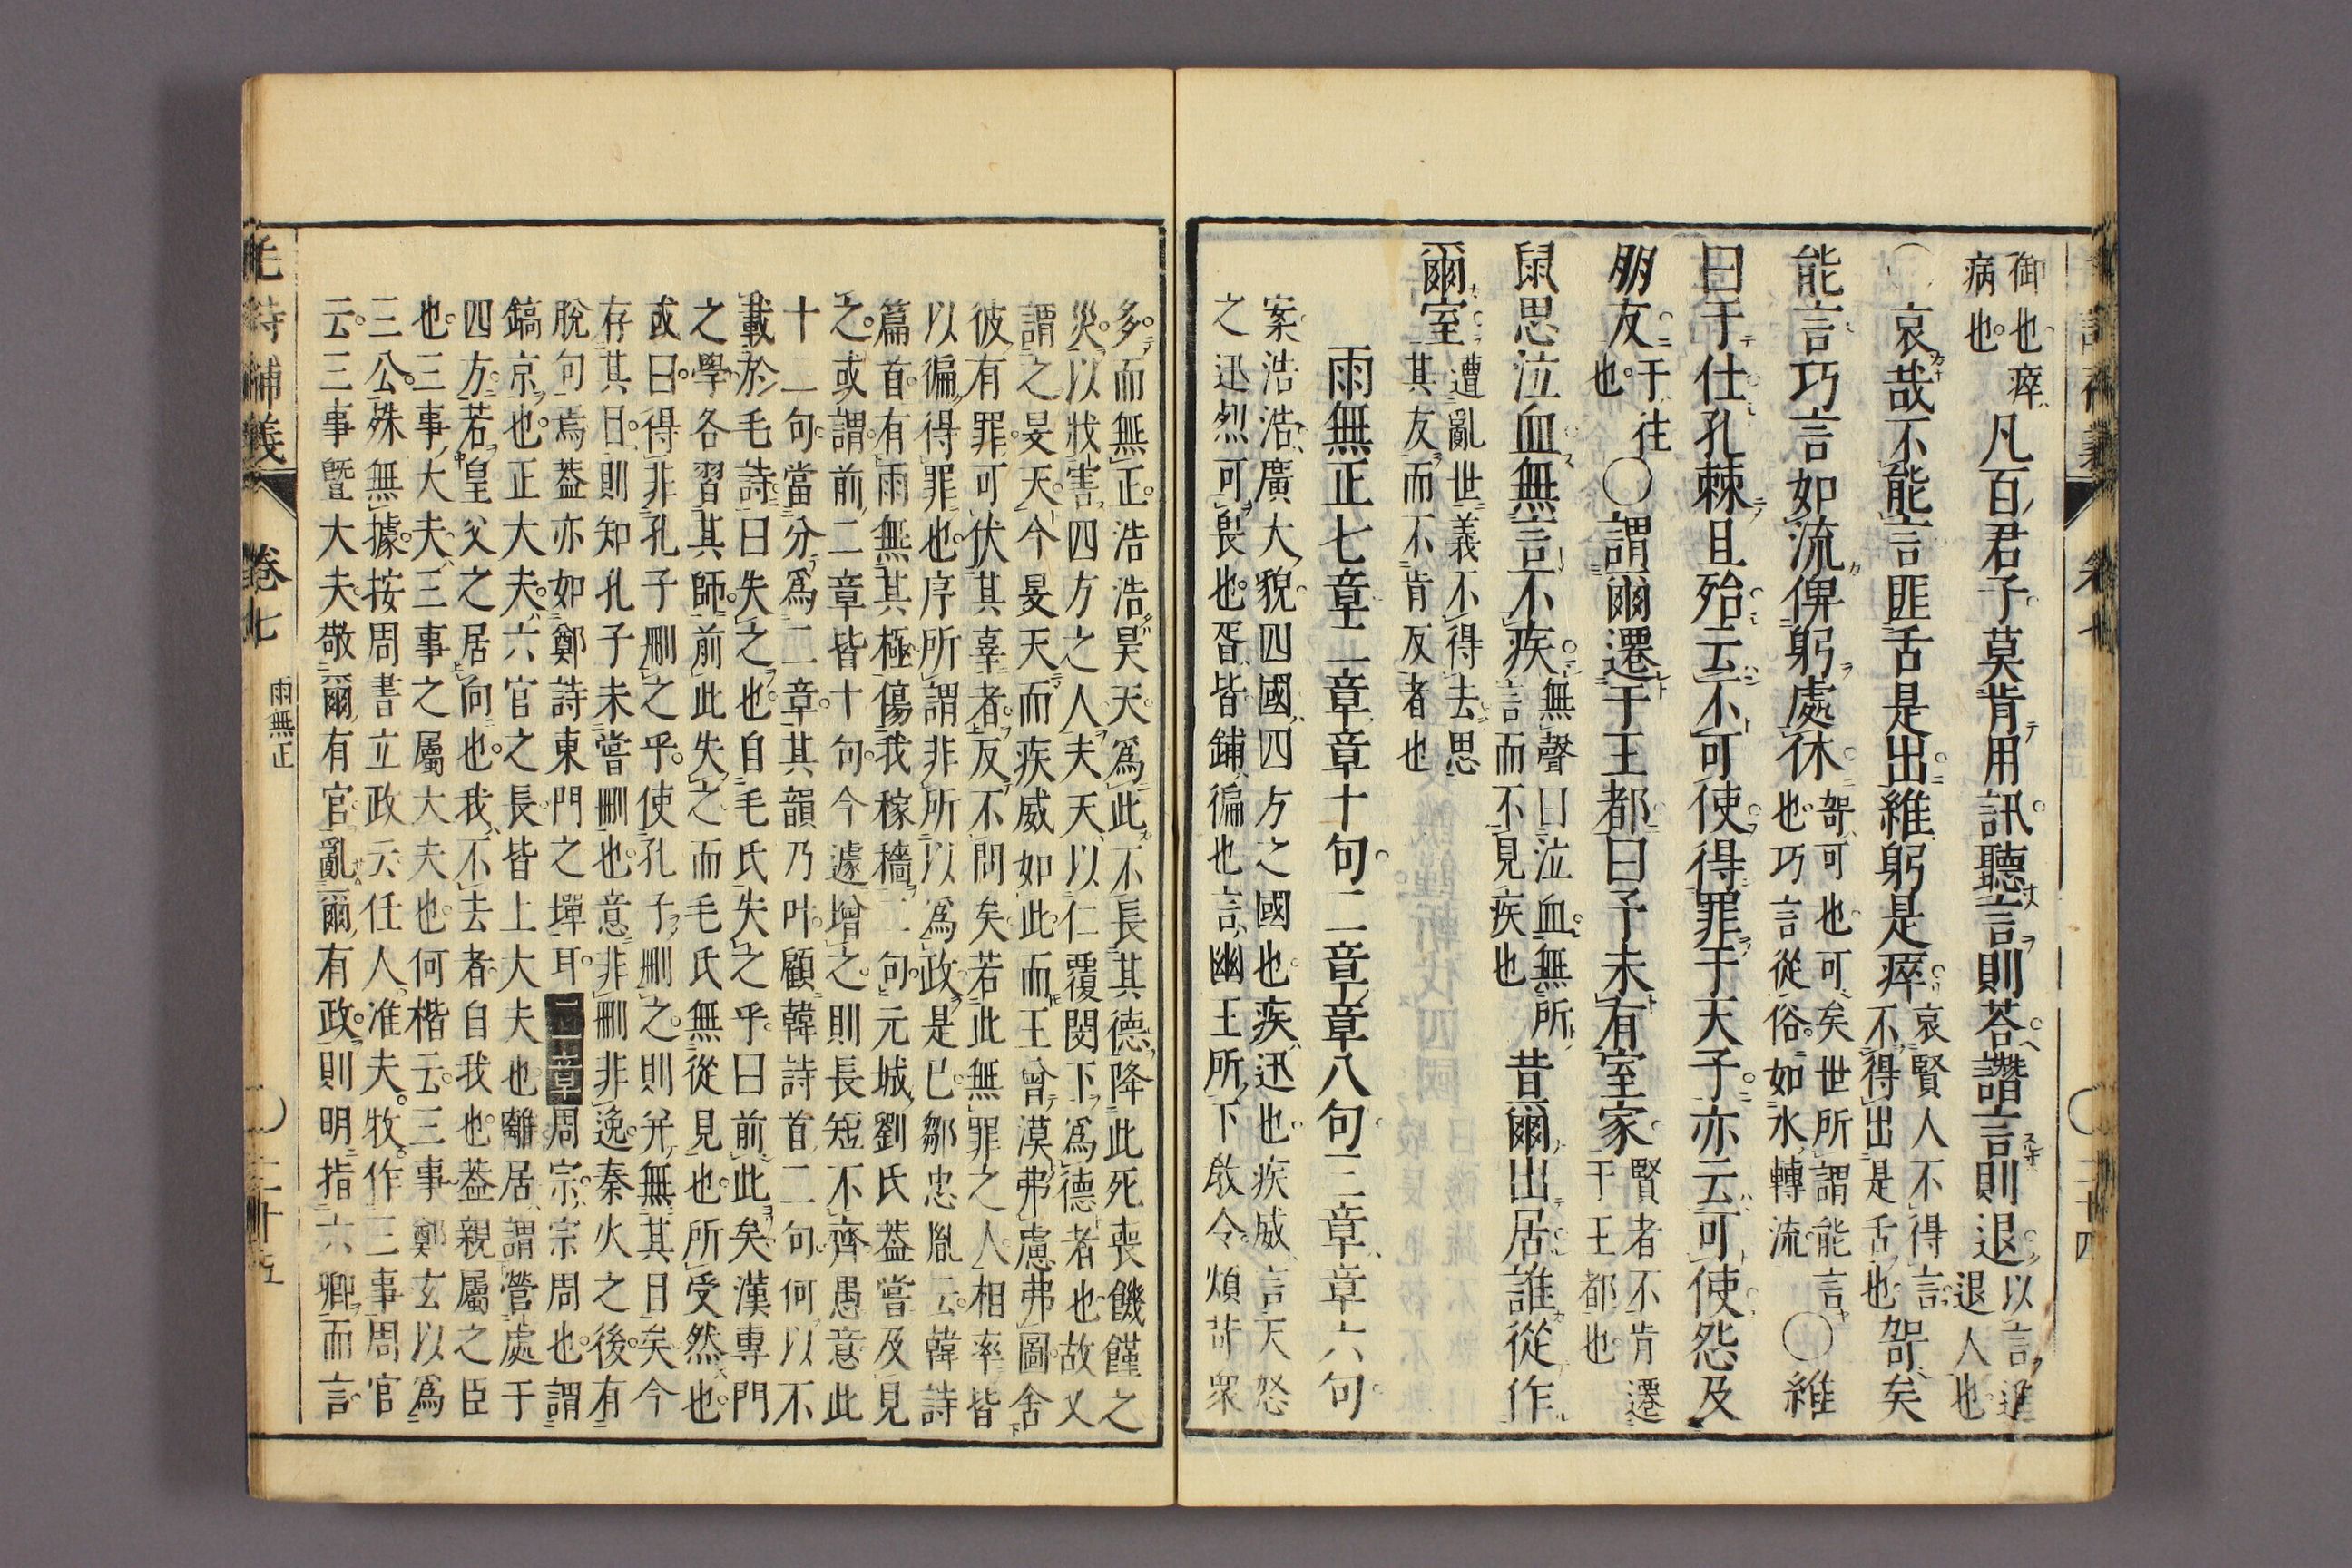 御也瘁
病也
凡百君子莫肯用訊聽言則荅譖言則退
以言進
退人也
〇哀哉不能言匪舌是出維躬是瘁
哀賢人不得言
不得出是舌也
哿矣
能言巧言如流俾躬處休
哿可也可矣世所謂能言
也巧言從俗如水轉流
〇維
曰于仕孔棘且殆云不可使得罪于天子亦云可使怨及
朋友
于往
也
〇謂爾遷于王都曰予未有室家
賢者不肯遷
于王都也
鼠思泣血無言不疾
無聲曰泣血無所
言而不見疾也
昔爾出居誰從作
爾室
遭亂世義不得去思
其友而不肯反者也
雨無正七章二章章十句二章章八句三章章六句
案浩浩廣大貌四國四方之國也疾迅也疾威言天怒
之迅烈可畏也胥皆鋪徧也言幽王所下啟令煩苛眾
多而無正浩浩昊天爲此不長其德降此死喪饑饉之
災以戕害四方之人夫天以仁覆閔下爲德者也故又
謂之旻天今旻天而疾威如此而王曾漠弗慮弗圖舍
彼有罪可伏其辜者反不問矣若此無罪之人相率皆
以徧得罪也序所謂非所以爲政是已鄒忠胤云韓詩
篇首有雨無其極傷我稼穡二句元城劉氏葢嘗及見
之或謂前二章皆十句今遽增之則長短不齊愚意此
十二句當分爲二章其韻乃叶顧韓詩首二句何以不
載於毛詩曰失之也自毛氏失之乎曰前此矣漢專門
之學各習其師前此失之而毛氏無從見也所受然也
或曰得非孔子刪之乎使孔子刪之則并無其目矣今
存其目則知孔子未嘗刪也意非刪非逸秦火之後有
脫句焉葢亦如鄭詩東門之墠耳二章周宗宗周也謂
鎬京也正大夫六官之長皆上大夫也離居謂營處于
四方若皇父之居向也我不去者自我也葢親屬之臣
也三事大夫三事之屬大夫也何楷云三事鄭玄以爲
三公殊無據按周書立政云任人准夫牧作三事周官
云三事曁大夫敬爾有官亂爾有政則明指六卿而言
毛詩補義
卷七
雨無正
〇二十五